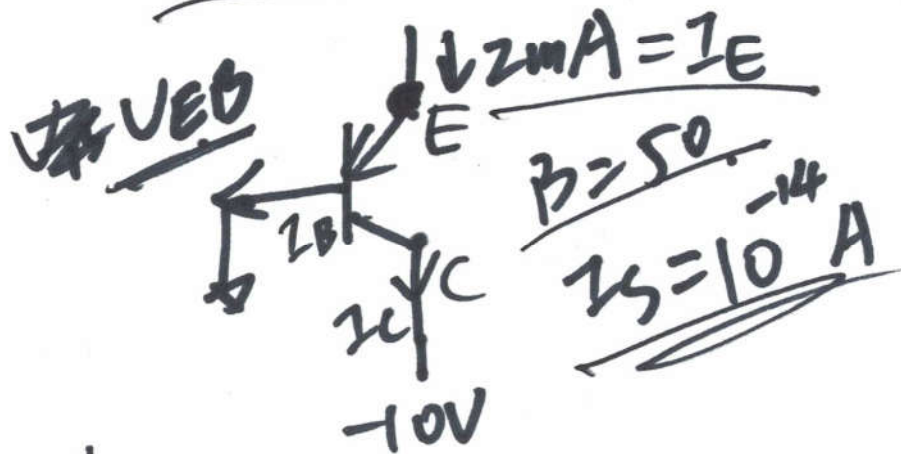 ↓2mA = IE
求 VEB
E
β = 50
IB
IS = 10^-14 A
C
IC
-10V